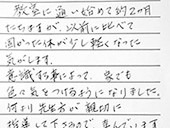 教室に通い始めて約2ヶ月
たちますが、以前に比べて
固かった体が少し軽くなった
気がします。
意識する事によって、家でも
色々気をつけるようになりました。
何より先生方が親切に
指導して下さるので喜んでいます